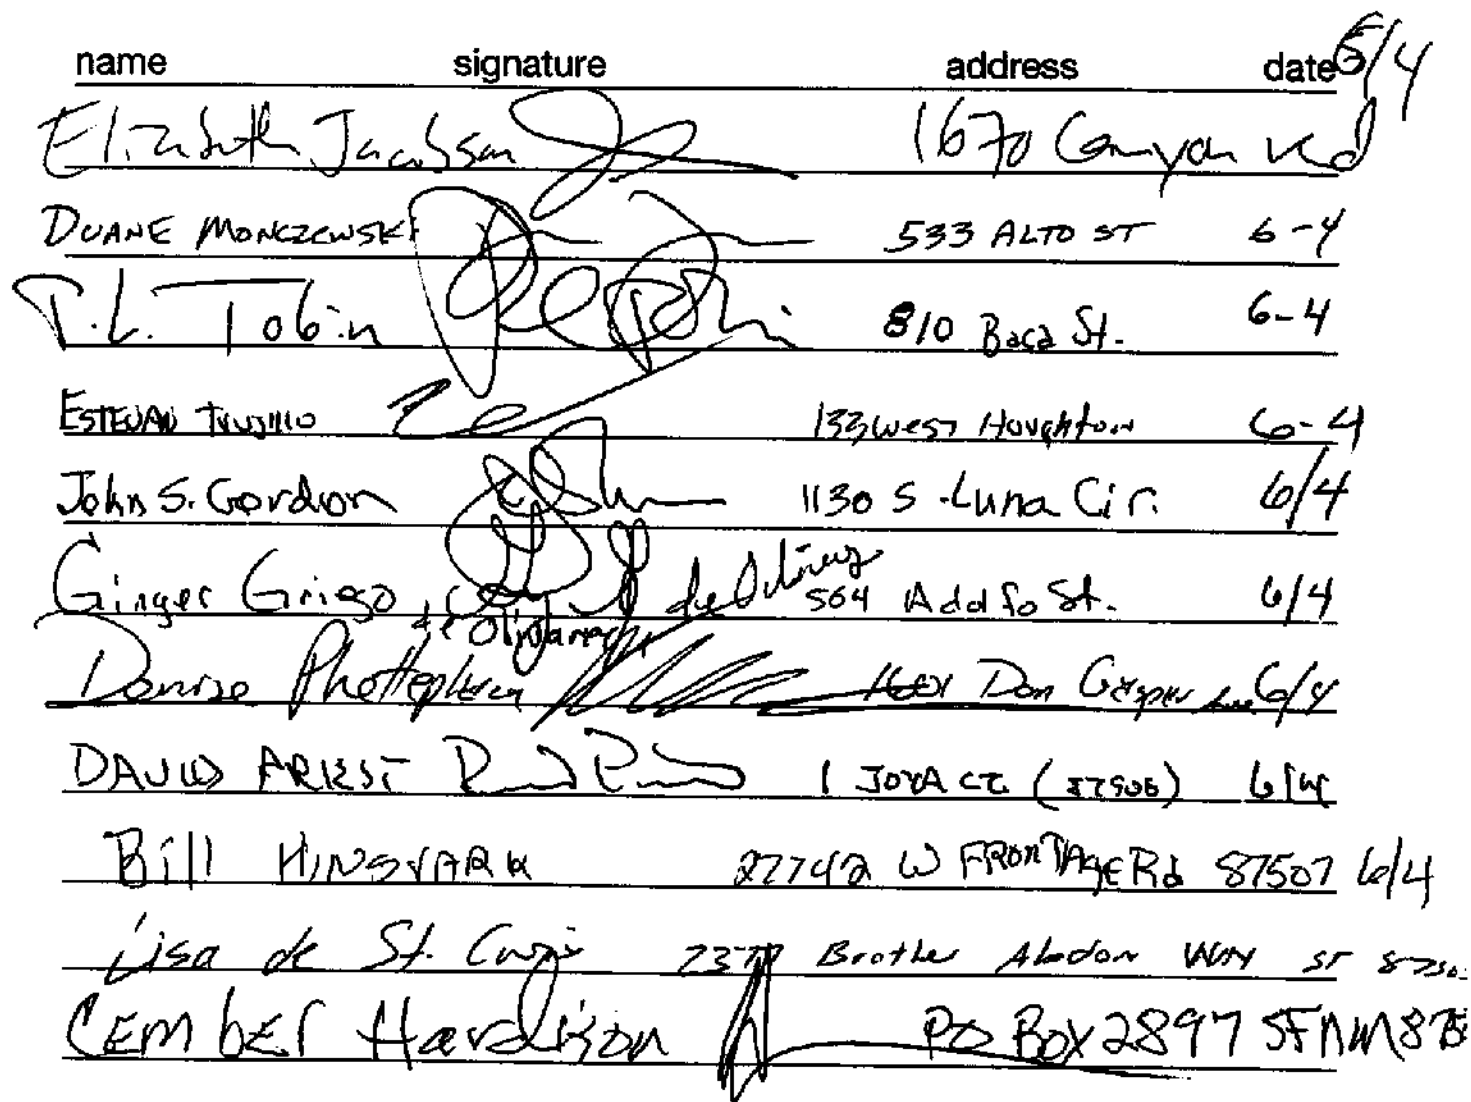 name signature address date 6/4
Elizabeth Jacobson 1670 Canyon Rd
DUANE MONCZEWSKI 533 ALTO ST 6-4
P.L. Tobin 810 Baca St. 6-4
ESTEVAN TRUJILLO 133 West Houghton 6-4
John S. Gordon 1130 S. Luna Cir. 6/4
Ginger Griego 564 St. 6/4
de
Denise Don Gaspar Ave 6/4
DAVID ARIEST 1 JOYA CT. (87506) 6/4
Bill HINSVARK 27742 W FRONTAGE Rd 87507 6/4
Lisa de St. Brother Abdon WAY SF
CEMbER Hardison PO BOX 2897 SF NM